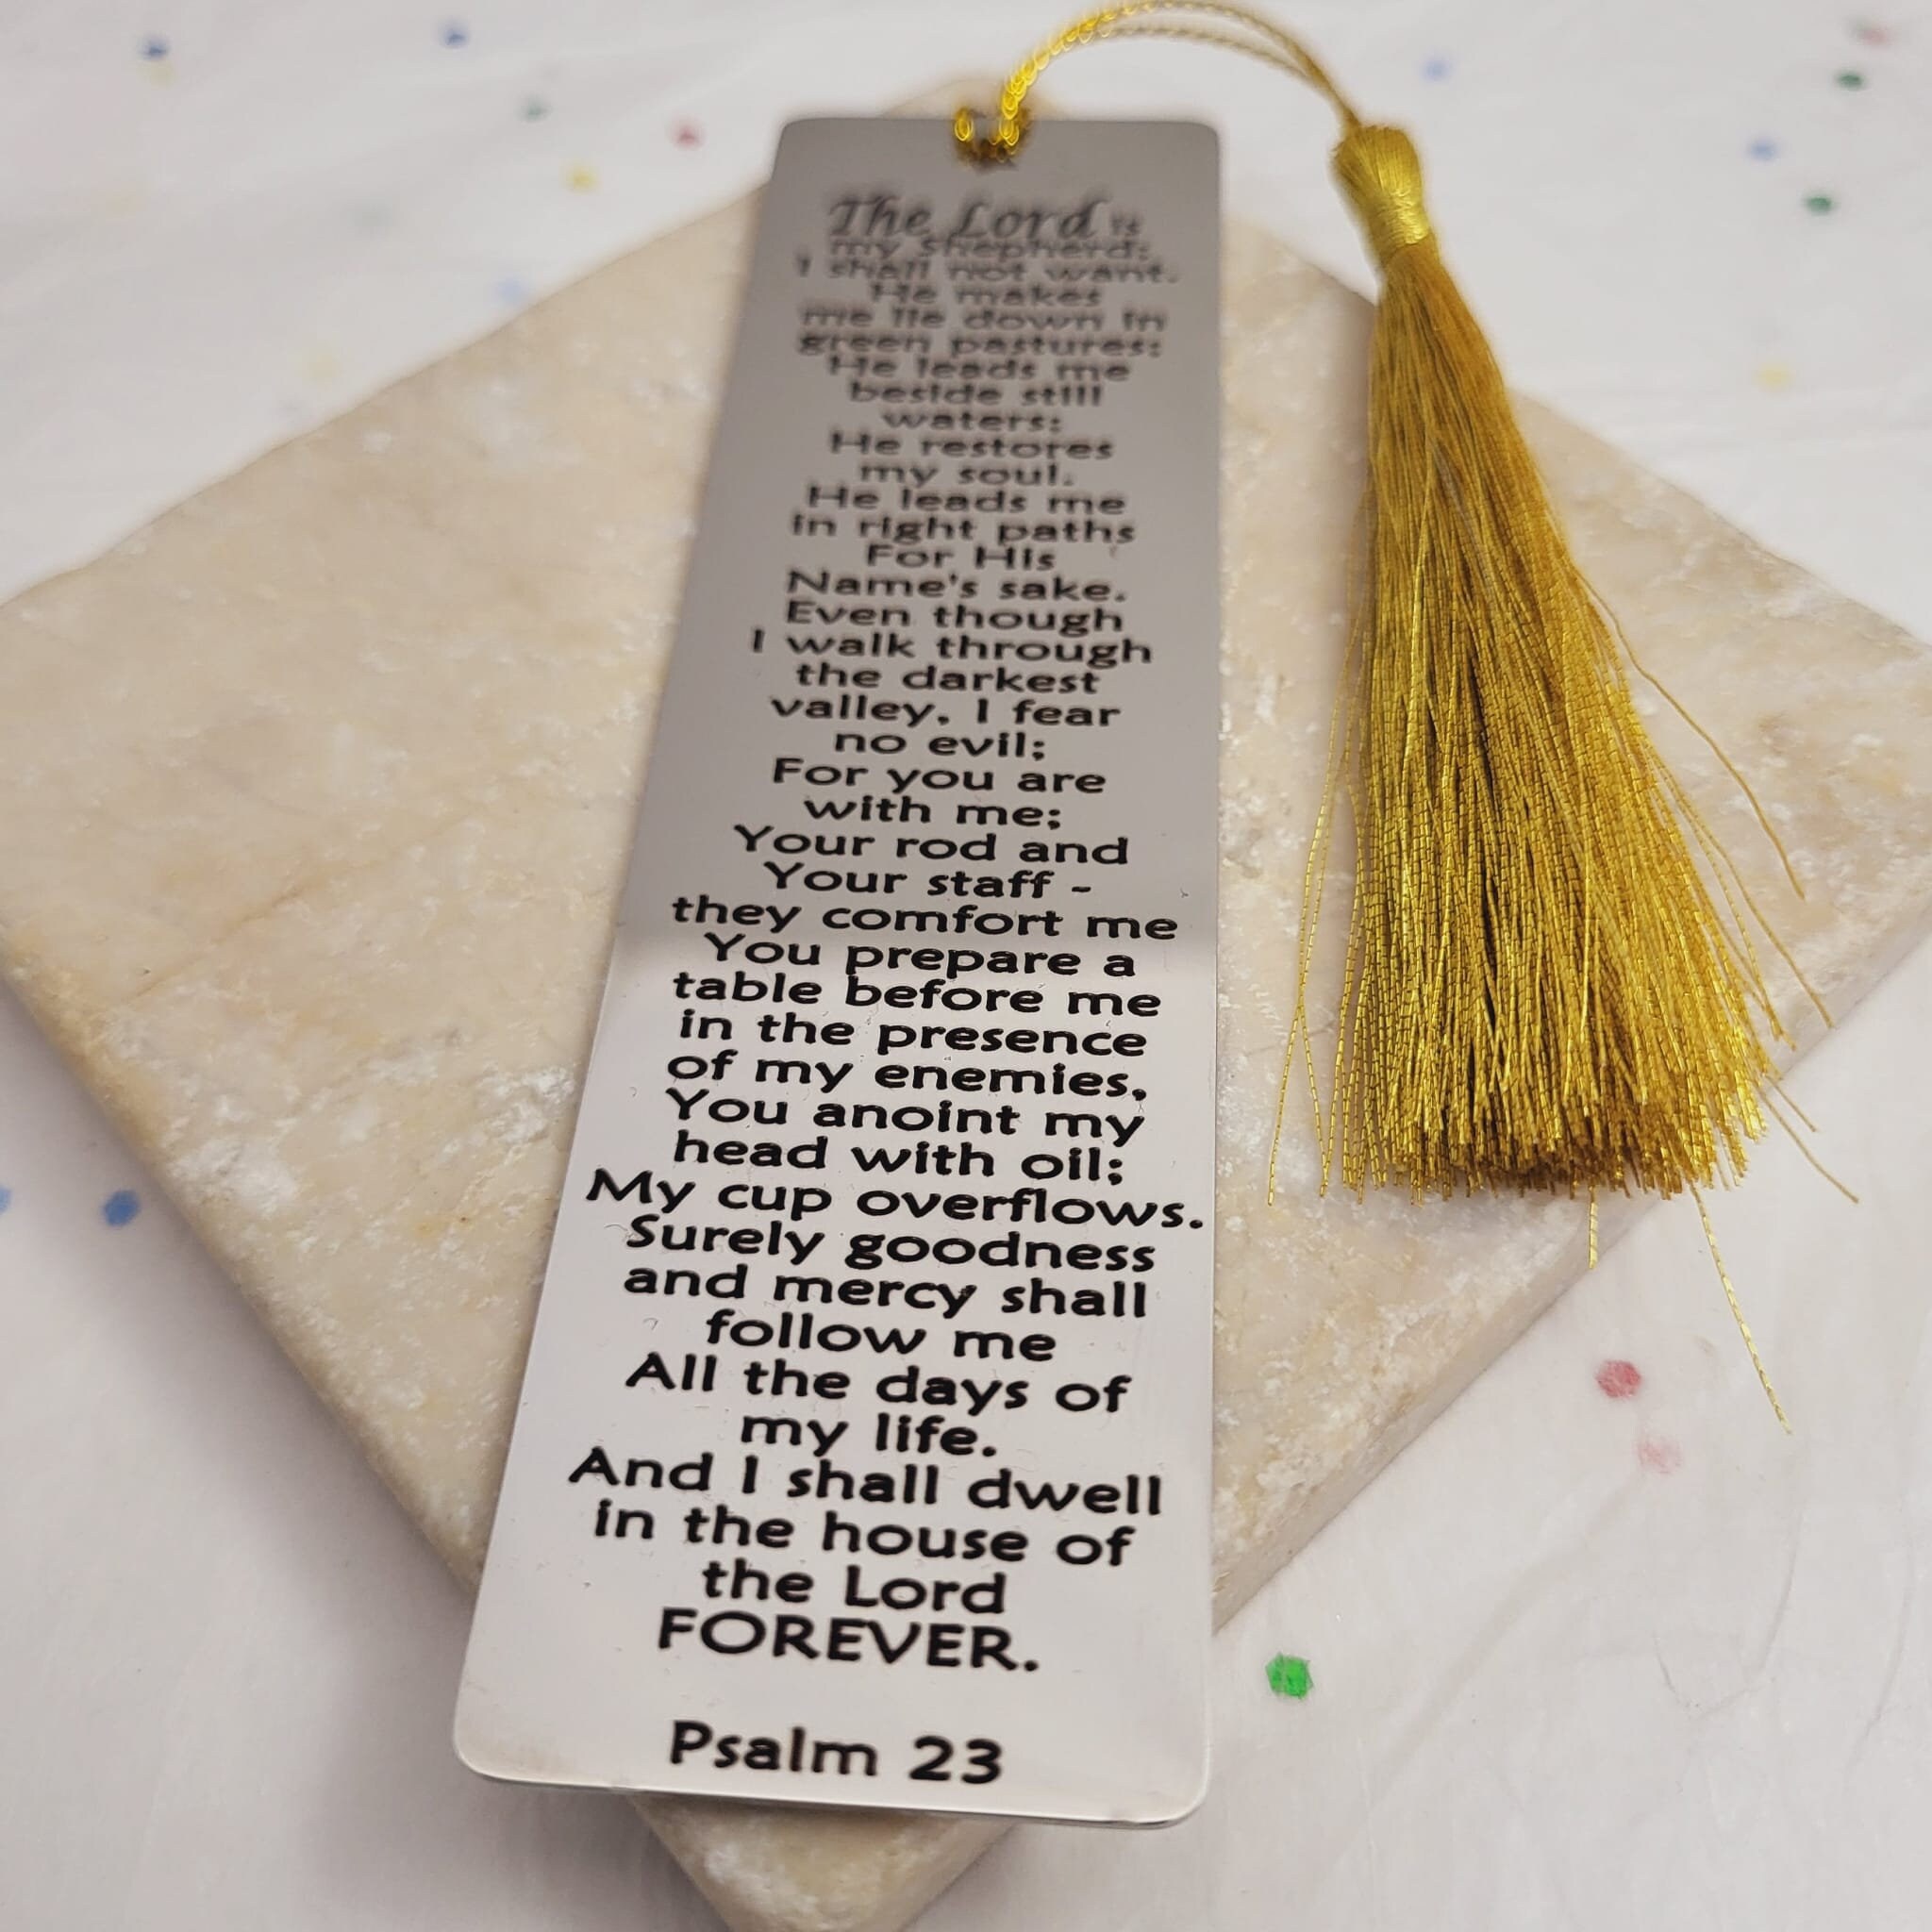 The Lord is
my shepherd;
I shall not want.
He makes
me lie down in
green pastures;
He leads me
beside still
waters;
He restores
my soul.
He leads me
in right paths
For His
Name's sake.
Even though
I walk through
the darkest
valley, I fear
no evil;
For you are
with me;
Your rod and
Your staff -
they comfort me
You prepare a
table before me
in the presence
of my enemies,
You anoint my
head with oil;
My cup overflows.
Surely goodness
and mercy shall
follow me
All the days of
my life.
And I shall dwell
in the house of
the Lord
FOREVER.
Psalm 23